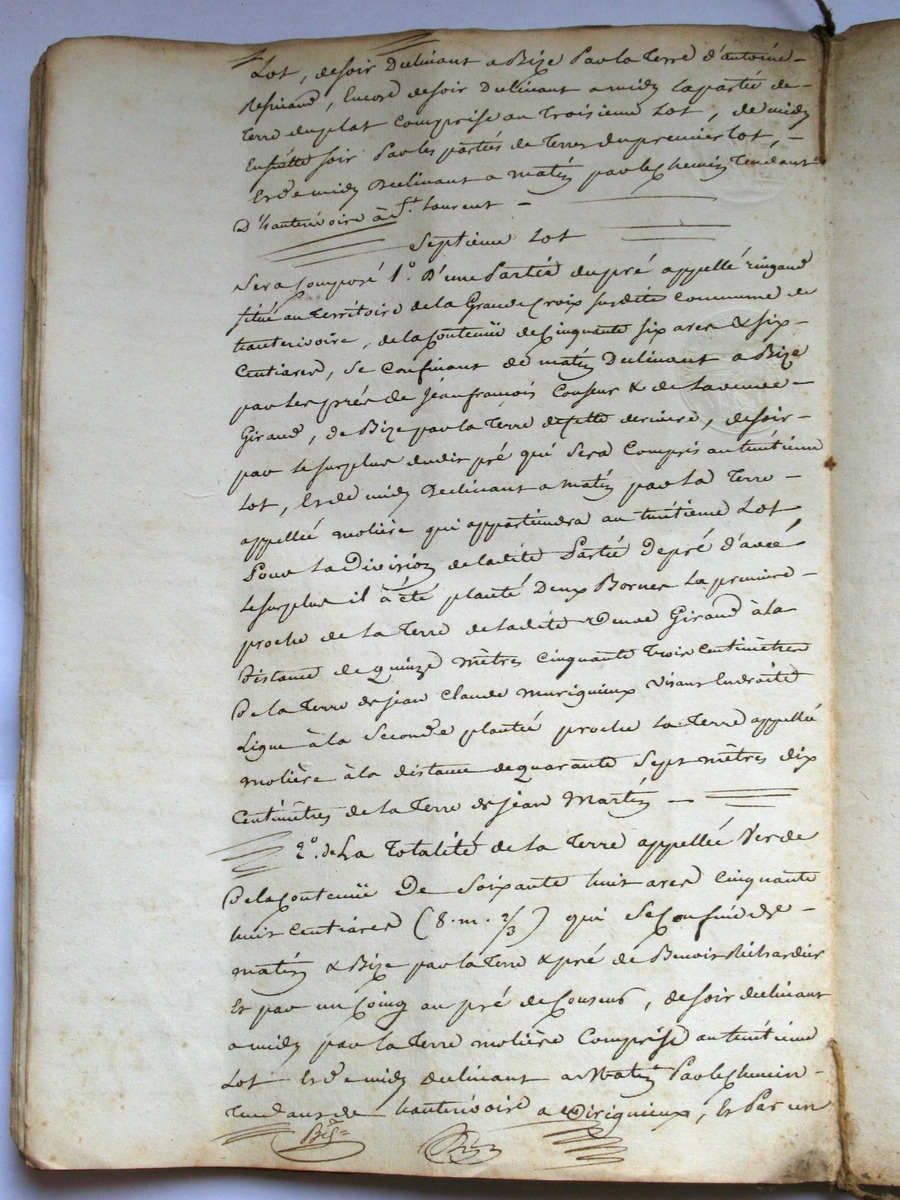 Lot, de soir Declinant a Bize Par la Terre d'antoine
Encore de soir Declinant a midy la partie de
Terre du plat Comprise au Troisieme Lot, de midy
Ensuitte soir Par les parties de Terres du premier lot,
Et de midy Declinant a matin par le Chemin Tendant
D'hauterivoire à St. Laurent
Septieme Lot
Sera Composé 1°. D'une Partie du pré appellé ringaud
situé au Territoire de la Grande Croix susdite commune de
hauterivoire, de la Contenüe de Cinquante six ares & six
Centiares, se Confinant de matin Declinant a Bize
par les prés de jean francois Couseur & de la veuve
Giraud, de Bize par la Terre de cette derniere, de soir
par le surplus dudit pré qui sera Compris au huitieme
Lot, Et de midy Declinant a matin par la Terre
appellée moliere qui appartiendra au huitieme Lot
Pour la Division de ladite Partie de pré d'avec
le surplus il à été planté Deux Bornes la premiere
proche de la Terre de ladite veuve Giraud à la
distance de quinze mètres cinquante trois centimètres
De la Terre de jean Claude murigueux visant En droite
Ligne à la seconde plantée proche la Terre appellée
molière à la distance de quarante sept mètres dix
Centimètres de la Terre de jean Martin
2°. de La Totalité de la Terre appellée Verde
De la Contenüe De soixante huit ares cinquante
huit centiares (8. m. 2/3) qui se Confine de
matin & Bize par la Terre & pré de Benoit Richardier
Et par un Coing au pré de Couseur, de soir declinant
a midy par la Terre molière Comprise au huitieme
Lot Et de midy declinant a Matin Par le Chemin
Tendant de hauterivoire a Virigneux, Et Par un